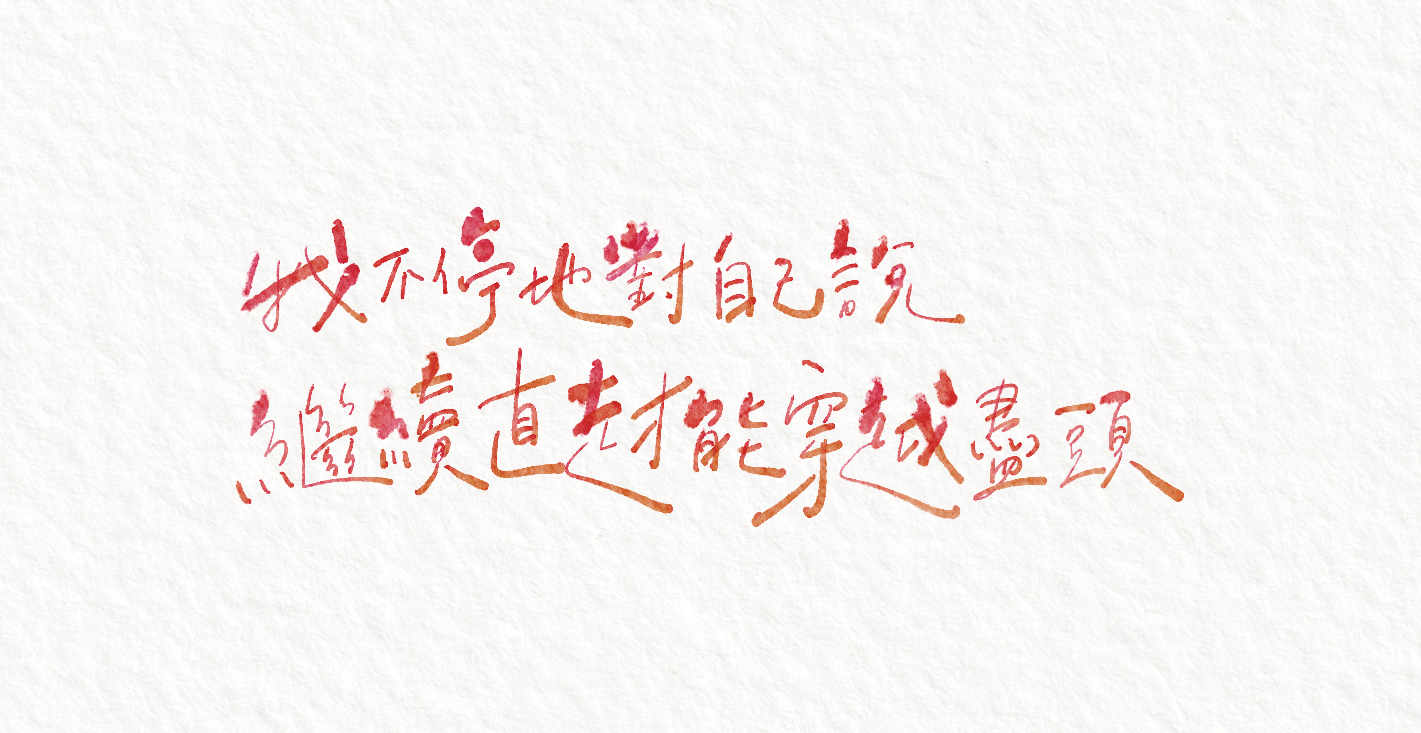 我不停地對自己說
繼續直走才能穿越盡頭